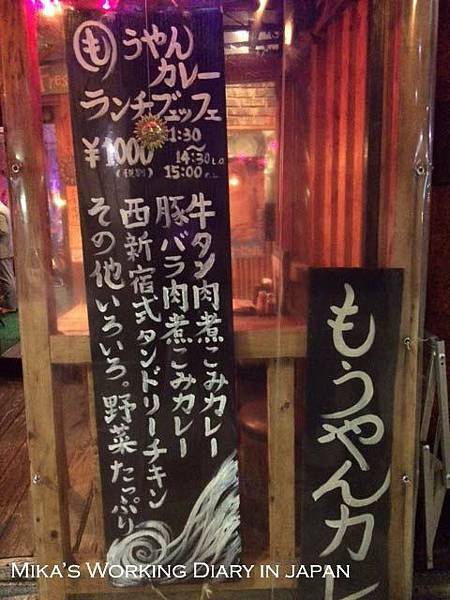 もうやん
カレー
ランチブュッフェ
¥1000
(税別)
11:30
〜
14:30 L.O
15:00
牛タン肉煮こみカレー
豚バラ肉煮こみカレー
西新宿式タンドリーチキン
その他いろいろ。野菜たっぷり
もうやんカレ
MIKA'S WORKING DIARY IN JAPAN